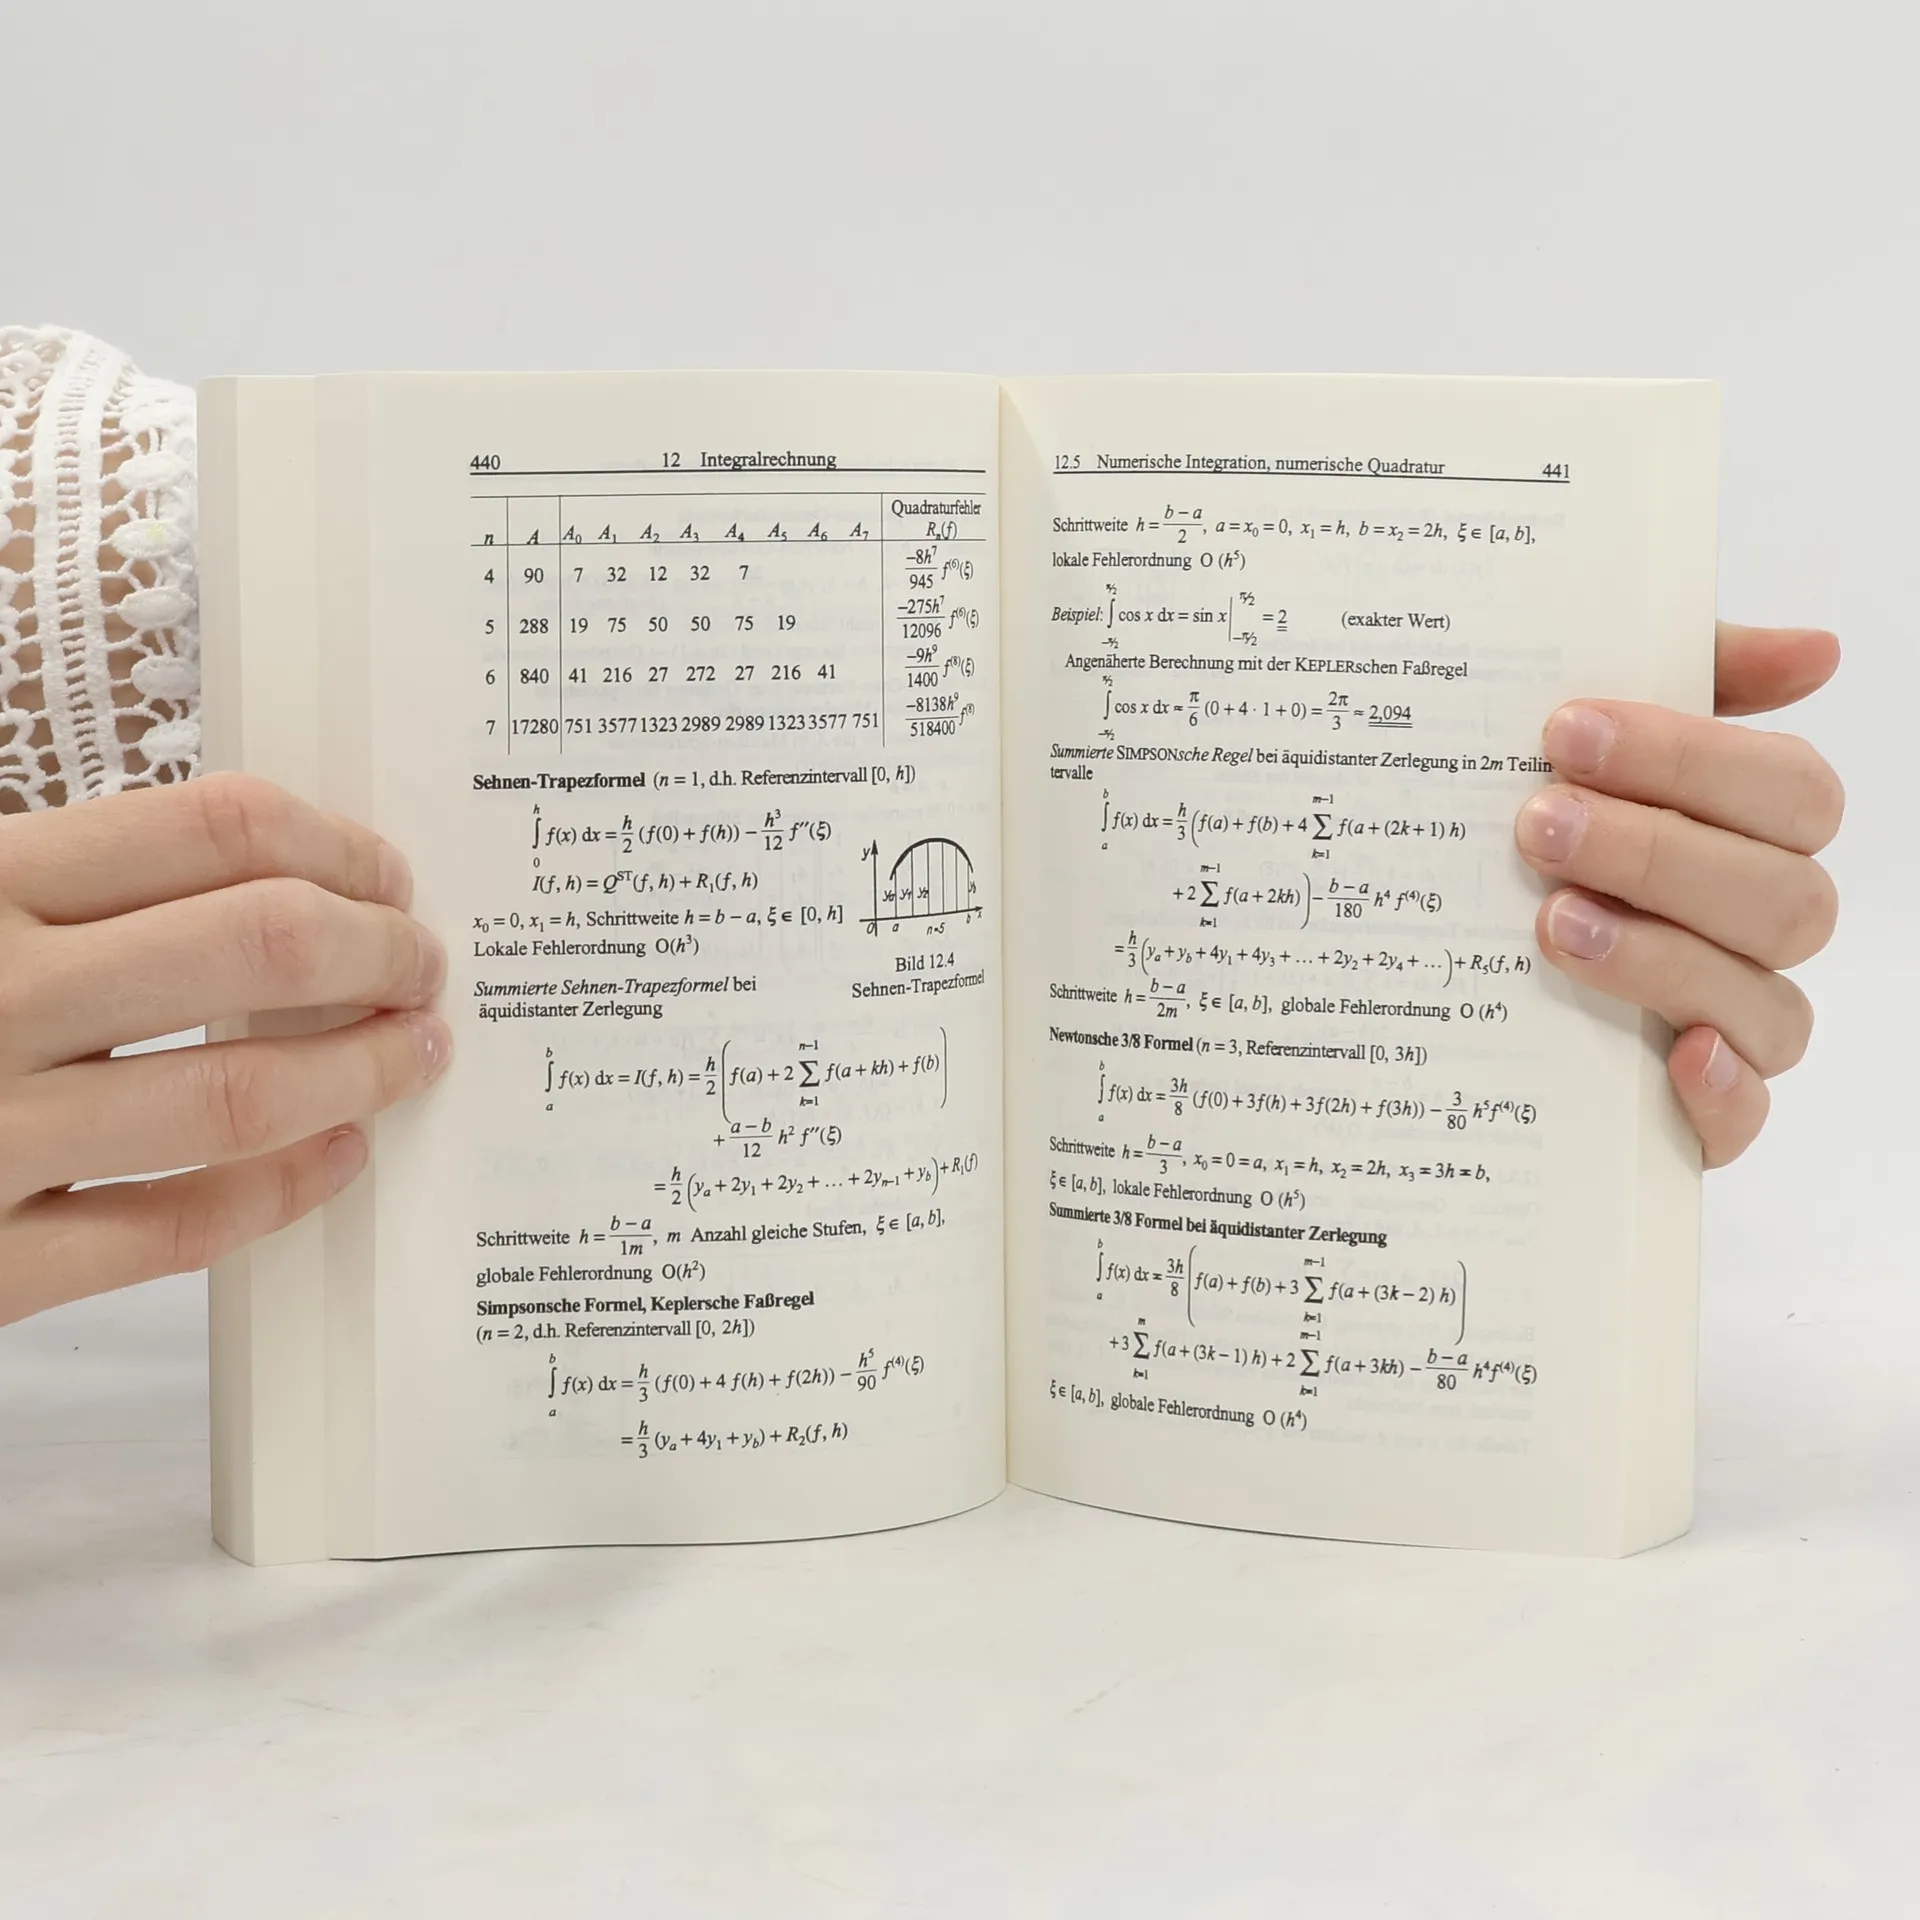 440 12 Integralrechnung
n A A₀ A₁ A₂ A₃ A₄ A₅ A₆ A₇ Quadraturfehler Rₙ(f)
4 90 7 32 12 32 7 −8h⁷/945 f⁽⁶⁾(ξ)
5 288 19 75 50 50 75 19 −275h⁷/12096 f⁽⁶⁾(ξ)
6 840 41 216 27 272 27 216 41 −9h⁹/1400 f⁽⁸⁾(ξ)
7 17280 751 3577 1323 2989 2989 1323 3577 751 −8138h⁹/518400 f⁽⁸⁾
Sehnen-Trapezformel (n = 1, d.h. Referenzintervall [0, h])
∫₀ʰ f(x) dx = h/2 (f(0) + f(h)) − h³/12 f″(ξ)
I(f, h) = Qˢᵀ(f, h) + R₁(f, h)
x₀ = 0, x₁ = h, Schrittweite h = b − a, ξ ∈ [0, h]
Lokale Fehlerordnung O(h³)
y
y₀ y₁ y₂ y₅
0 a n=5 b x
Bild 12.4
Sehnen-Trapezformel
Summierte Sehnen-Trapezformel bei
äquidistanter Zerlegung
∫ₐᵇ f(x) dx = I(f, h) = h/2 ( f(a) + 2 ∑ₖ₌₁ⁿ⁻¹ f(a + kh) + f(b) )
+ a − b/12 h² f″(ξ)
= h/2 (yₐ + 2y₁ + 2y₂ + … + 2yₙ₋₁ + y_b) + R₁(f)
Schrittweite h = b − a/1m, m Anzahl gleiche Stufen, ξ ∈ [a, b],
globale Fehlerordnung O(h²)
Simpsonsche Formel, Keplersche Faßregel
(n = 2, d.h. Referenzintervall [0, 2h])
∫ₐᵇ f(x) dx = h/3 (f(0) + 4 f(h) + f(2h)) − h⁵/90 f⁽⁴⁾(ξ)
= h/3 (yₐ + 4y₁ + y_b) + R₂(f, h)
12.5 Numerische Integration, numerische Quadratur 441
Schrittweite h = b − a/2, a = x₀ = 0, x₁ = h, b = x₂ = 2h, ξ ∈ [a, b],
lokale Fehlerordnung O (h⁵)
Beispiel: ∫_{−π/2}^{π/2} cos x dx = sin x |_{−π/2}^{π/2} = 2 (exakter Wert)
Angenäherte Berechnung mit der KEPLERschen Faßregel
∫_{−π/2}^{π/2} cos x dx ≈ π/6 (0 + 4 · 1 + 0) = 2π/3 ≈ 2,094
Summierte SIMPSONsche Regel bei äquidistanter Zerlegung in 2m Teilin-
tervalle
∫ₐᵇ f(x) dx = h/3 ( f(a) + f(b) + 4 ∑ₖ₌₁ᵐ⁻¹ f(a + (2k + 1) h)
+ 2 ∑ₖ₌₁ᵐ⁻¹ f(a + 2kh) ) − b − a/180 h⁴ f⁽⁴⁾(ξ)
= h/3 (yₐ + y_b + 4y₁ + 4y₃ + … + 2y₂ + 2y₄ + …) + R₅(f, h)
Schrittweite h = b − a/2m, ξ ∈ [a, b], globale Fehlerordnung O (h⁴)
Newtonsche 3/8 Formel (n = 3, Referenzintervall [0, 3h])
∫ₐᵇ f(x) dx = 3h/8 (f(0) + 3f(h) + 3f(2h) + f(3h)) − 3/80 h⁵f⁽⁴⁾(ξ)
Schrittweite h = b − a/3, x₀ = 0 = a, x₁ = h, x₂ = 2h, x₃ = 3h = b,
ξ ∈ [a, b], lokale Fehlerordnung O (h⁵)
Summierte 3/8 Formel bei äquidistanter Zerlegung
∫ₐᵇ f(x) dx = 3h/8 ( f(a) + f(b) + 3 ∑ₖ₌₁ᵐ⁻¹ f(a + (3k − 2) h) )
+ 3 ∑ₖ₌₁ᵐ f(a + (3k − 1) h) + 2 ∑ₖ₌₁ᵐ⁻¹ f(a + 3kh) − b − a/80 h⁴f⁽⁴⁾(ξ)
ξ ∈ [a, b], globale Fehlerordnung O (h⁴)